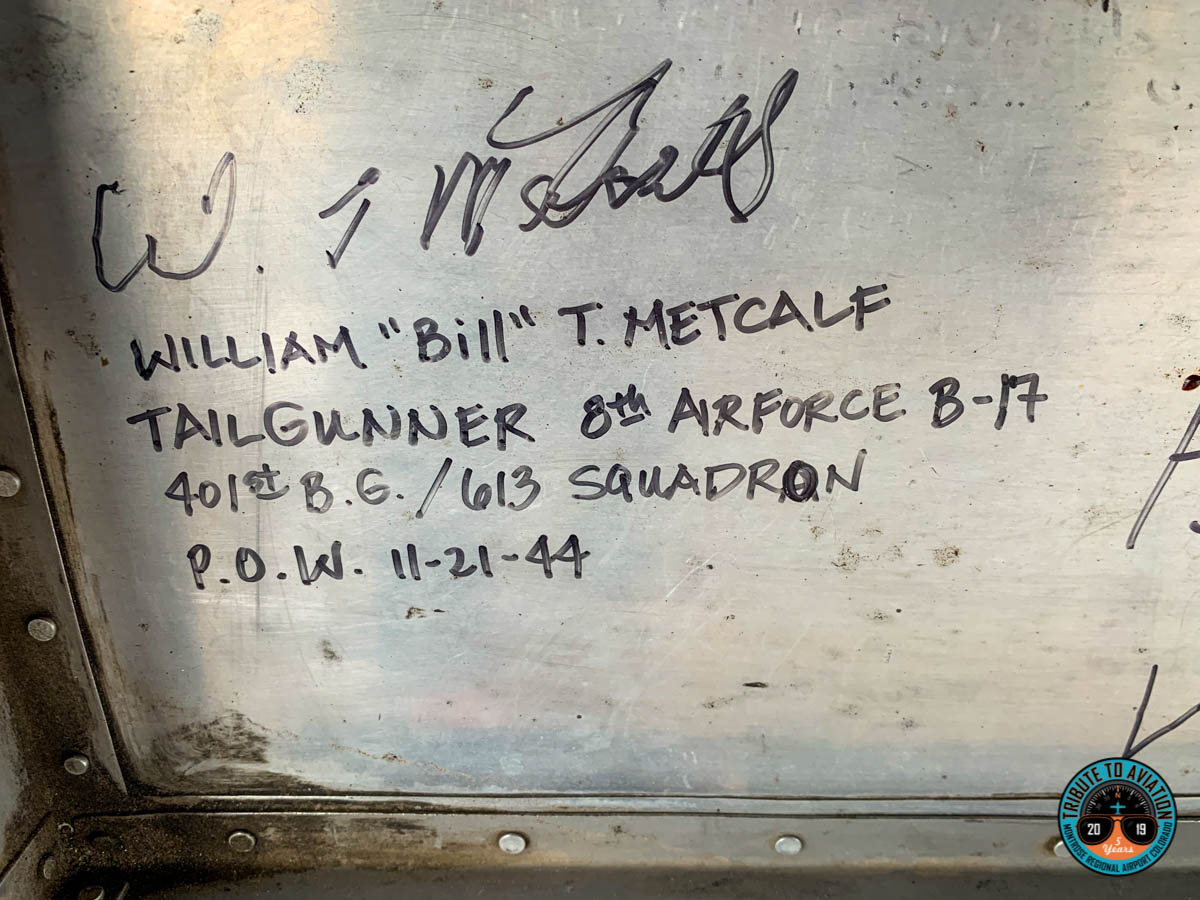 W. T Metcalf
WILLIAM "Bill" T. METCALF
TAILGUNNER 8th AIRFORCE B-17
401st B.G. / 613 SQUADRON
P.O.W. 11-21-44
TRIBUTE TO AVIATION
N
20 19
5
Years
MONTROSE REGIONAL AIRPORT COLORADO